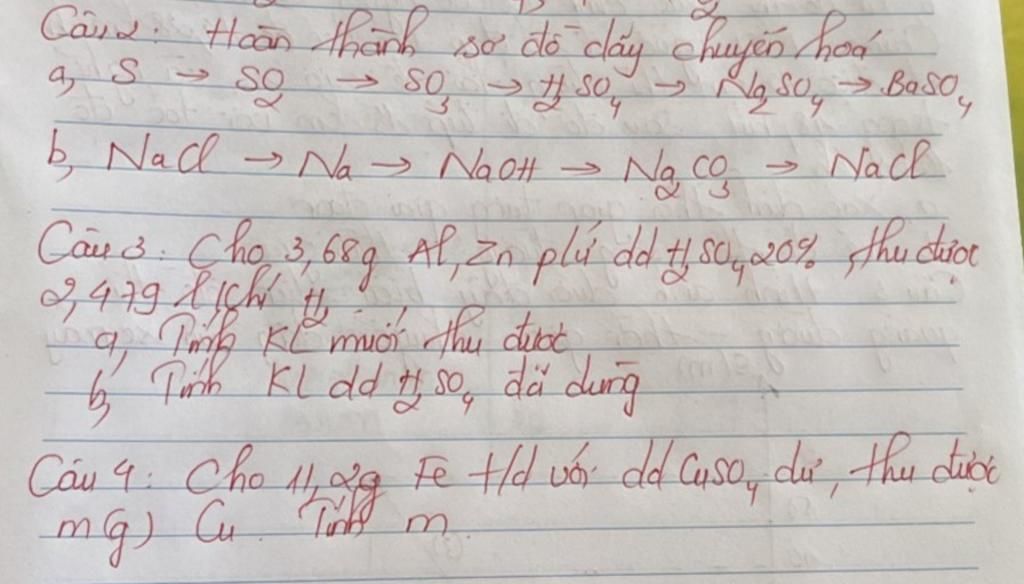 Câu 2: Hoàn thành sơ đồ dãy chuyển hoá
a, S → SO2 → SO3 → H2SO4 → Na2SO4 → BaSO4
b, NaCl → Na → NaOH → Na2CO3 → NaCl
Câu 3: Cho 3,68g Al, Zn p/ứ dd H2SO4 20%, thu được
2,479 l khí H2
a, Tính KL muối thu được
b, Tính KL dd H2SO4 đã dùng
Câu 4: Cho 11,2g Fe t/d với dd CuSO4 dư, thu được
m(g) Cu. Tính m.